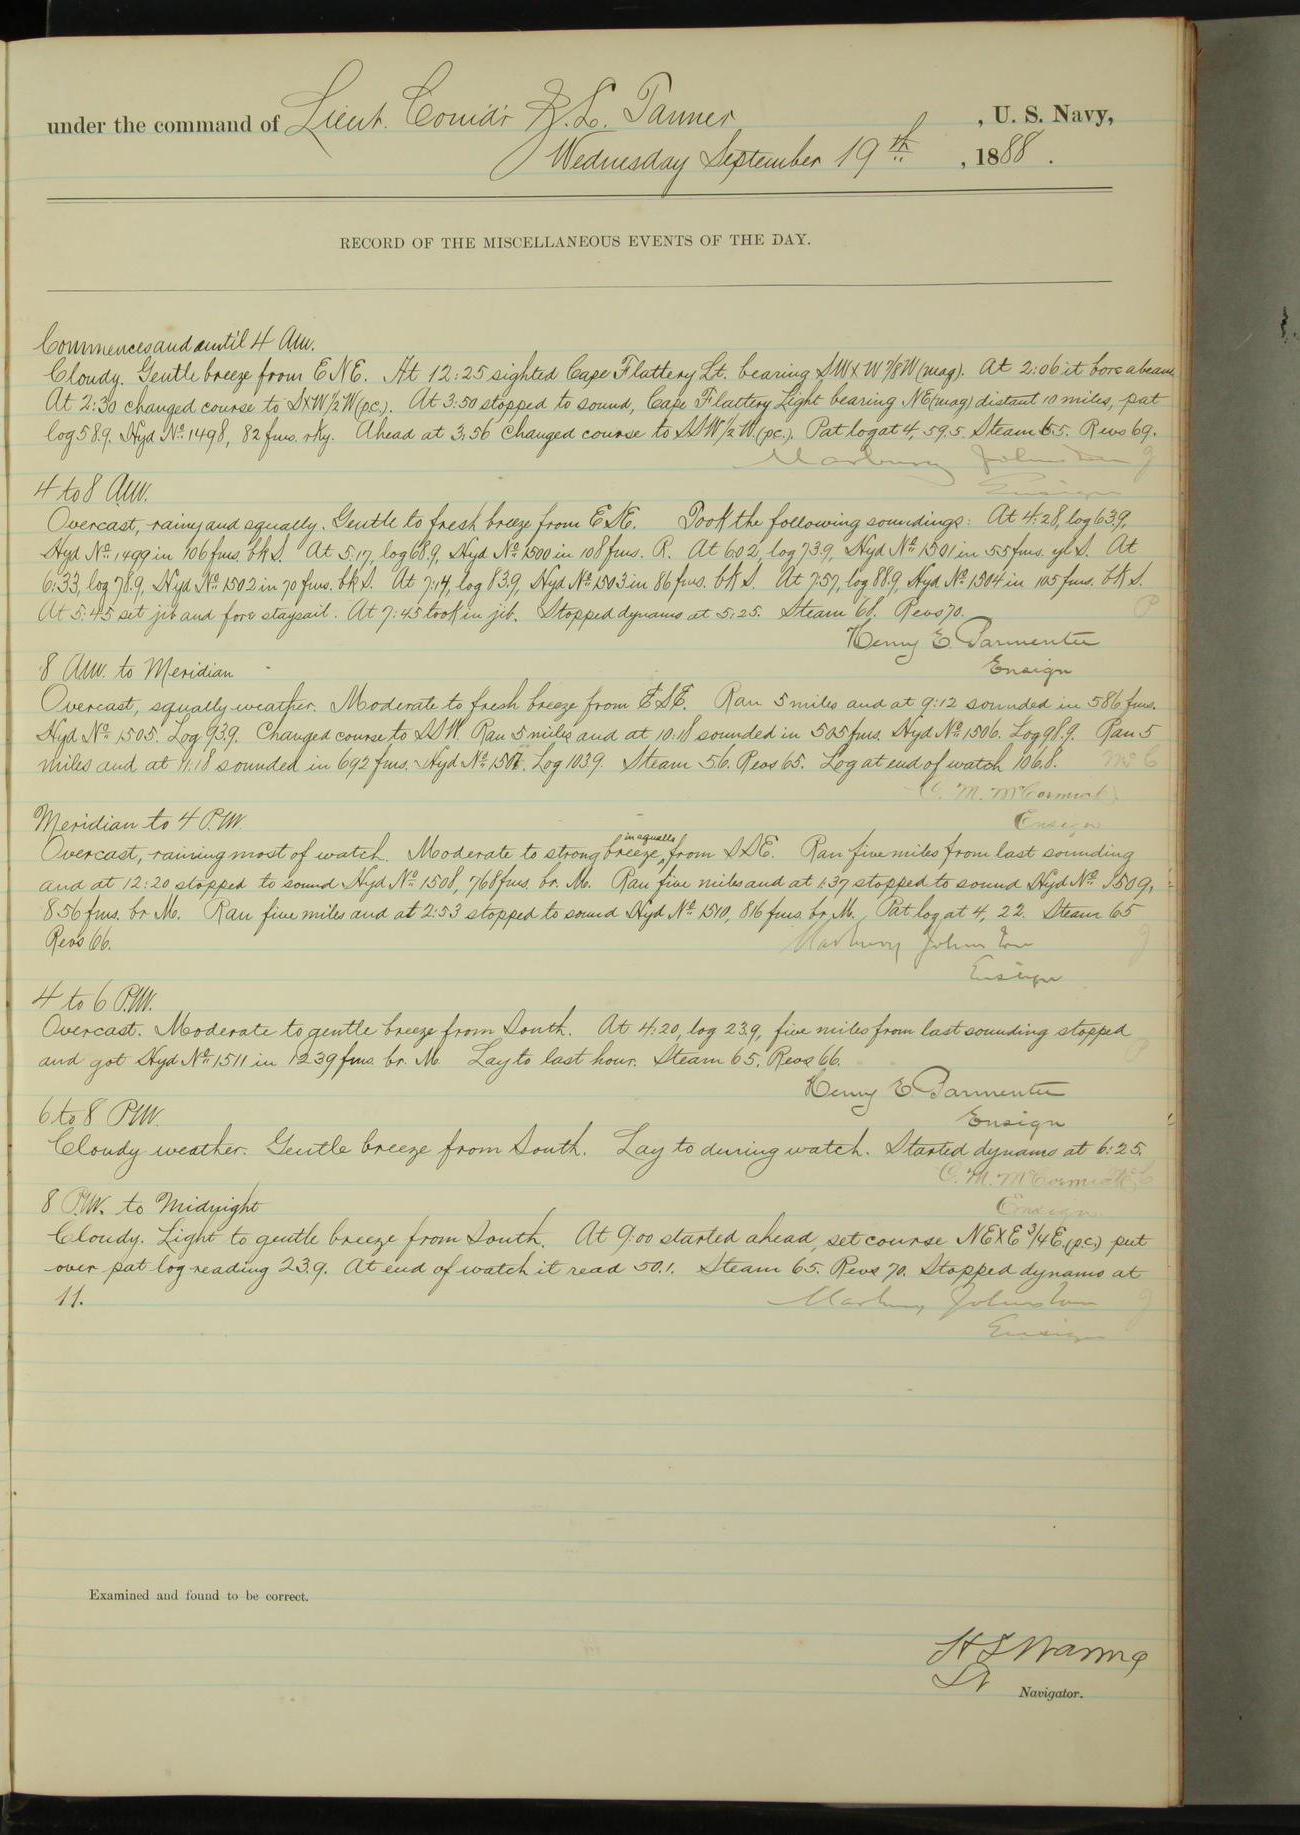 under the command of Lieut. Comdr Z. L. Tanner , U. S. Navy,
Wednesday September 19th , 1888 .
RECORD OF THE MISCELLANEOUS EVENTS OF THE DAY.
Commences and until 4 A.M.
Cloudy. Gentle breeze from ENE. At 12:25 sighted Cape Flattery Lt. bearing SWxW 7/8 W (mag). At 2:06 it bore abeam
At 2:30 changed course to SxW 1/2 W (p.c.). At 3:50 stopped to sound, Cape Flattery Light bearing NE (mag) distant 10 miles, pat
log 58.9. Hyd No. 1498, 82 fms. rky. Ahead at 3,56 changed course to SSW 1/2 W. (p.c.). Pat log at 4, 59.5. Steam 65. Revs 69.
Marbury Johnston J
Ensign
4 to 8 A.M.
Overcast, rainy and squally. Gentle to fresh breeze from ESE. Took the following soundings: At 4:28, log 63.9,
Hyd No. 1499 in 106 fms. bk S. At 5:17, log 68.9, Hyd No. 1500 in 108 fms. R. At 6:02, log 73.9, Hyd No. 1501 in 55 fms. yl S. At
6:33, log 78.9, Hyd No. 1502 in 70 fms. bk S. At 7:14, log 83.9, Hyd No. 1503 in 86 fms. bk S. At 7:57, log 88.9, Hyd No. 1504 in 105 fms. bk S.
At 5:45 set jib and fore staysail. At 7:45 took in jib. Stopped dynamo at 5:25. Steam 68. Revs 70. P
Henry E. Parmenter
Ensign
8 A.M. to Meridian
Overcast, squally weather. Moderate to fresh breeze from ESE. Ran 5 miles and at 9:12 sounded in 586 fms.
Hyd No. 1505. Log 93.9. Changed course to SSW. Ran 5 miles and at 10:18 sounded in 505 fms. Hyd No. 1506. Log 98.9. Ran 5
miles and at 11:18 sounded in 692 fms. Hyd No. 1507. Log 103.9. Steam 56. Revs 65. Log at end of watch 106.8. McC
C. M. McCormick
Ensign
Meridian to 4 P.M.
in squalls
Overcast, raining most of watch. Moderate to strong breeze, from SSE. Ran five miles from last sounding
and at 12:20 stopped to sound Hyd No. 1508, 768 fms. br. M. Ran five miles and at 1:37 stopped to sound Hyd No. 1509,
856 fms. br. M. Ran five miles and at 2:53 stopped to sound Hyd No. 1510, 816 fms. br. M. Pat log at 4, 22. Steam 65
Revs 66.
Marbury Johnston J
Ensign
4 to 6 P.M.
Overcast. Moderate to gentle breeze from South. At 4:20, log 23.9, five miles from last sounding stopped
and got Hyd No. 1511 in 1239 fms. br. M. Lay to last hour. Steam 65. Revs 66. P
Henry E. Parmenter
Ensign
6 to 8 P.M.
Cloudy weather. Gentle breeze from South. Lay to during watch. Started dynamo at 6:25.
C. M. McCormick McC
Ensign.
8 P.M. to Midnight
Cloudy. Light to gentle breeze from South. At 9:00 started ahead, set course NExE 3/4 E. (p.c.) put
over pat log reading 23.9. At end of watch it read 50.1. Steam 65. Revs 70. Stopped dynamo at
11.
Marbury Johnston J
Ensign
Examined and found to be correct.
H S Waring
Lt
Navigator.